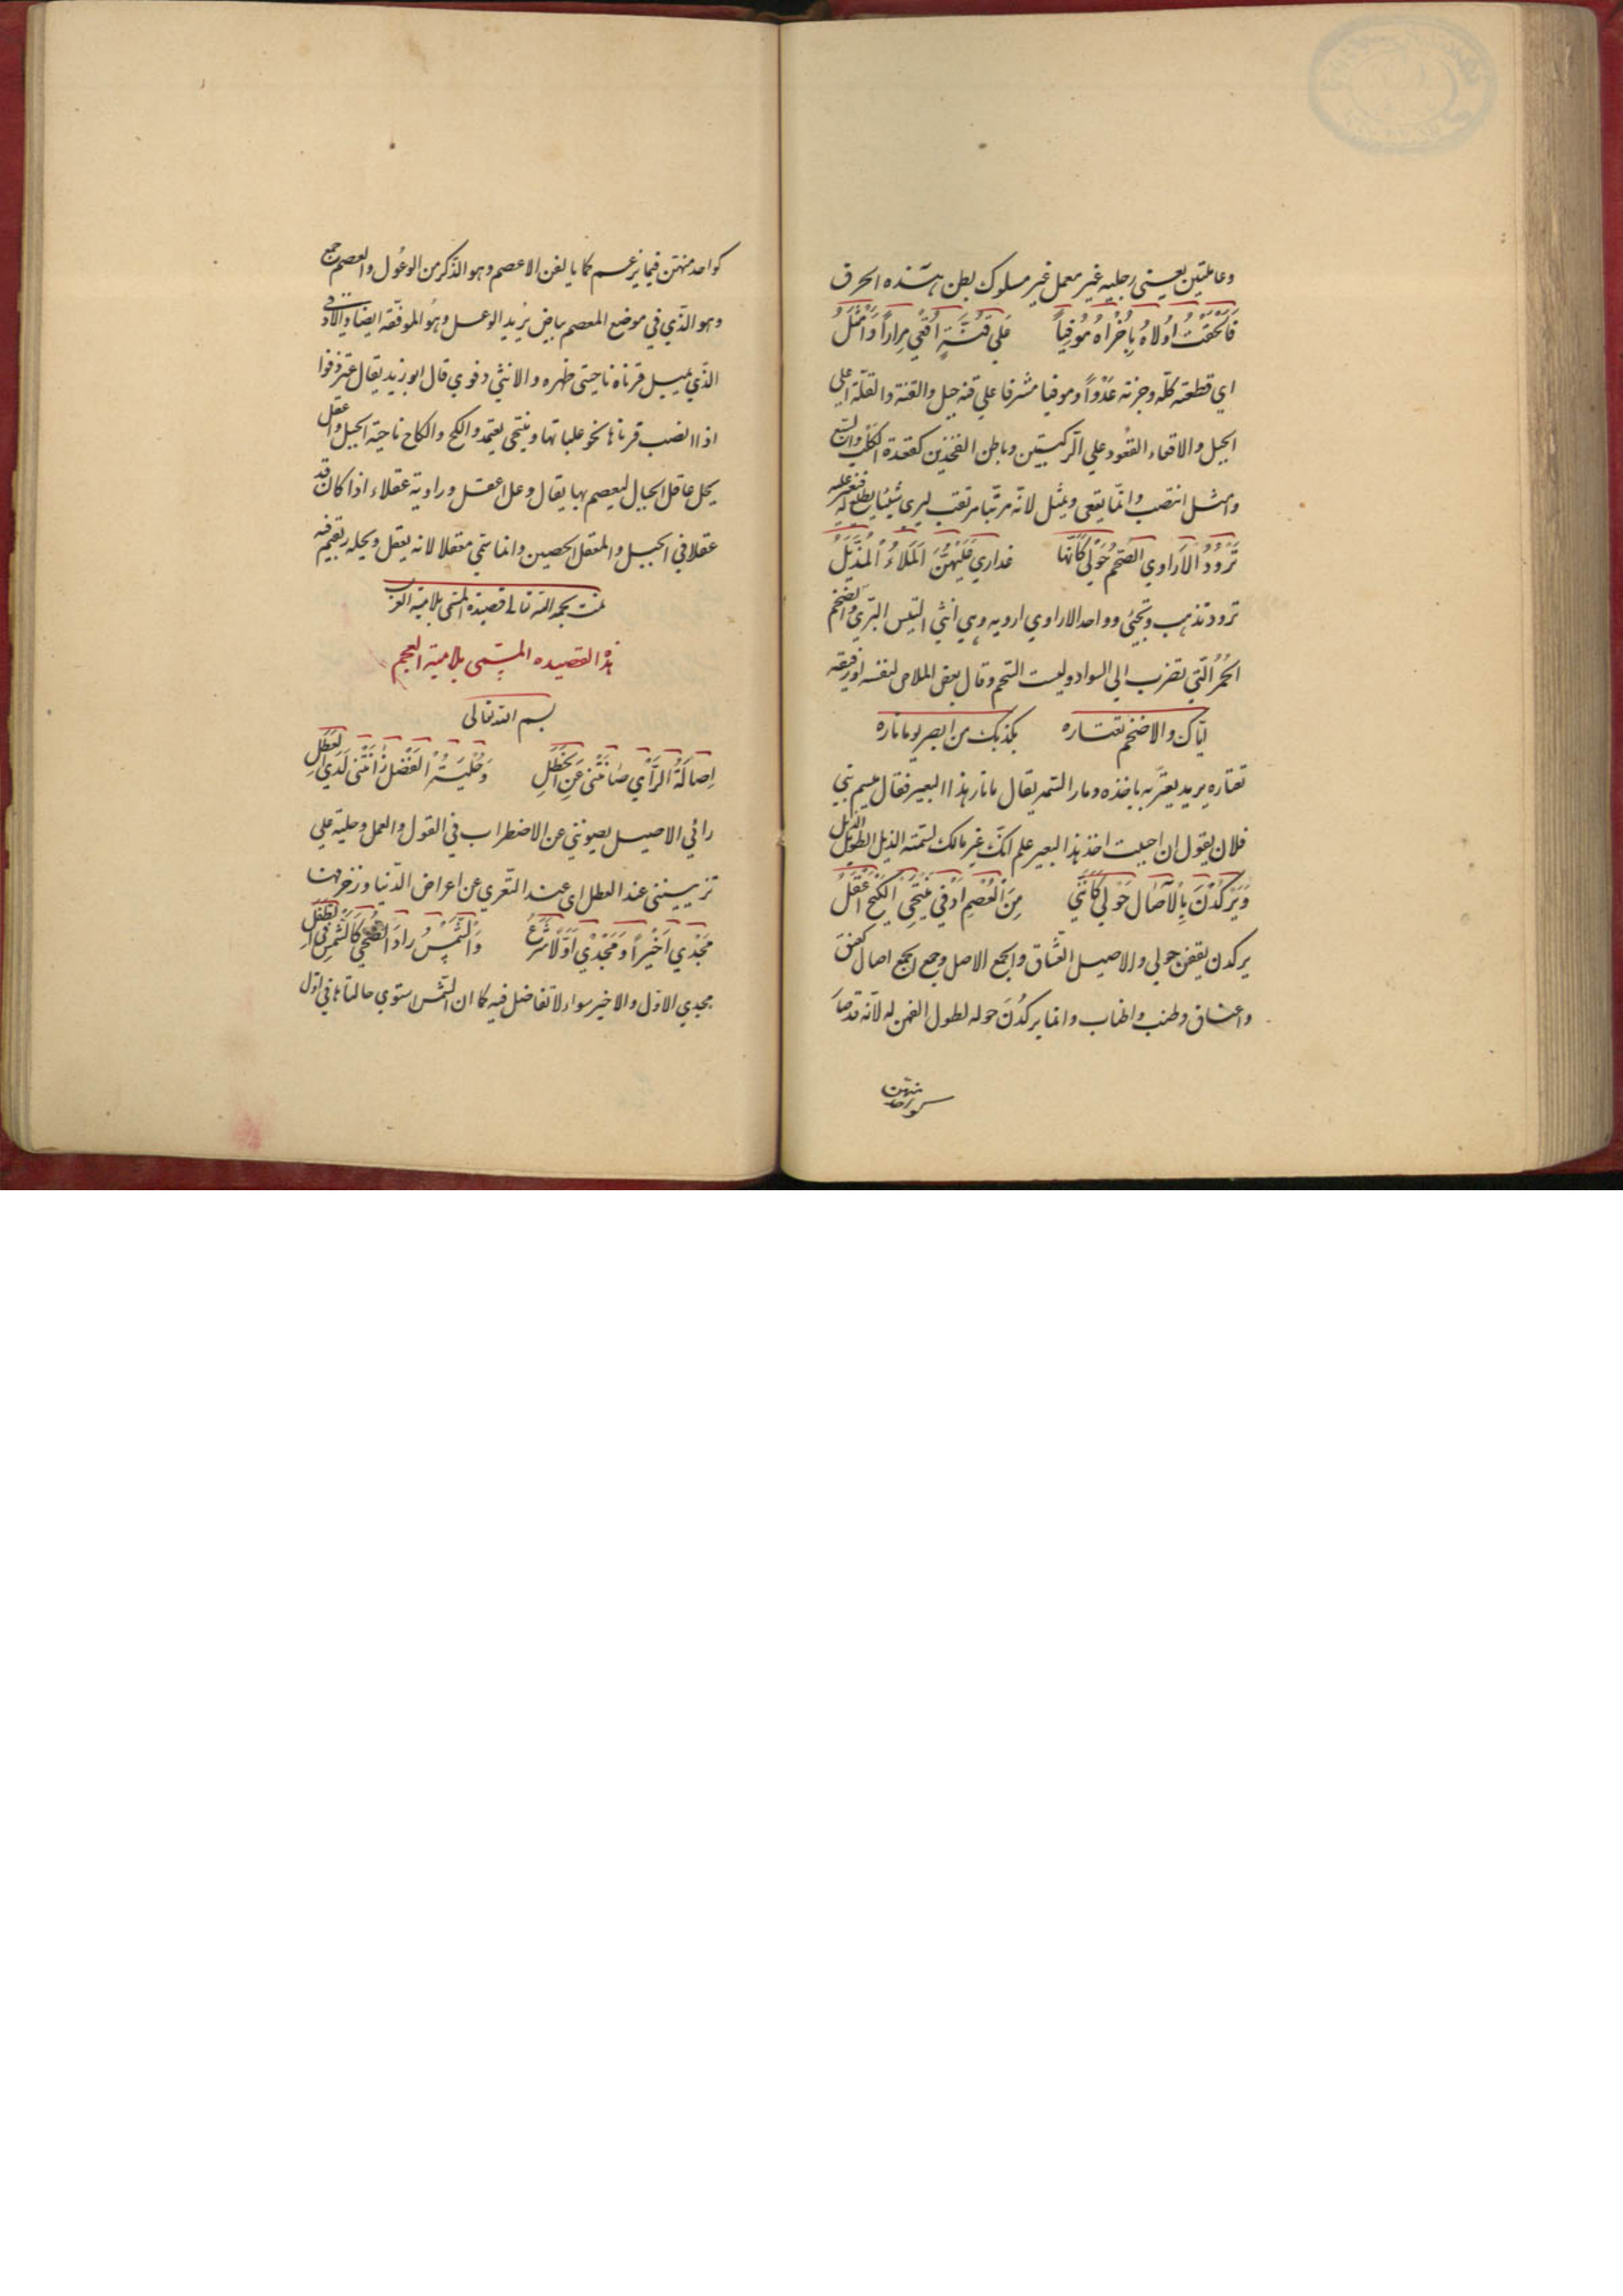 وعاملتين يعني رجليه غير معمل غير مسلوك بطن هذه الخرق
فَاَلحَقتُ اُولاهُ بِاُخْراهُ مُوْفِياً عَلي قُنَّةٍ اُقْعِي مِراراً وَاَمْثُلُ
اي قطعته كله وجزته عَدْواً وموفيا مشرفا علي قنة جبل والقنة والقلة اعلي
الجبل والاقعاء القعود علي الركبتين وباطن الفخذين كقعدة الكلب والسبع
وامثل انتصب وانما يقعي ويمثل لانه مرتبا مرتقب ليري شيئا يطلع له
تَرُوْدُ الاَراوي الصُحْمُ حَوْلي كَاَنَّها عذاري عَلَيْهِنَّ اَلمَلاءُ المُذَيَّلُ
ترود تذهب وتجئي وواحد الاراوي ارويه وهي انثي التيس البري والصحم
الحُمْرُ الَّتي تضرب الي السواد وليست التحم وقال بعض الملاحي لنفسه او رفيقه
اياك والاضخم تعتاره يكذبك من ابصر يوما ناره
تعتاره يريد يعتر به ياخذه ومار التمر يقال مانار هذا البعير فقال ميسم بني
فلان يقول ان احببت اخذ هذا البعير علم انك غير مالك لسمته الذيل الطويل الذيل
وَيَرْكُدْنَ بِالآصٰالِ حَوْلي كَاَنَّني مِنَ الْعُصْمِ اَدْفي يَنْتَحِي الكَيْحَ اَعْقَلُ
يركدن يقفن حولي والاصيل العشاق والجمع الاصل وجمع الجمع اصال كعنق
واعناق وطنب واطناب وانما يركُدنَ حوله لطول الفهن له لانه قد صار
كواحد منهن
كواحد منهن فيما يزعم كما يالفن الاعصم وهو الذكر من الوعول والعصم جمع
وهو الذي في موضع المعصم بياض يريد الوعل وهو الموقفة ايضا والادفي
الذي يميل قرناه ناحيتي ظهره والانثي دفوي قال ابو زيد يقال عنز دفوا
اذا انصب قرناها نحو علباتها وينتحي يعتمد والكح والكاح ناحية الجبل واعقل
يحل عاقل الجبال ليعصم بها يقال وعل اعقل وراوية عقلاء اذا كان قد
عقلا في الجبل والمعقل الحصين وانما سمي معقلا لانه يعقل ويحله ريقيم فيه
تمت بحمد الله تعالي قصيدة المسمى بلامية العرب
هذه القصيده المسمى بلامية العجم
بسم الله تعالى
اِصالَةُ الرَّأْيِ صٰانَتْني عَنِ الْخَطَلِ وَحِلْيَةُ الفَضْلِ زٰانَتْني لَدَي الْعَطَلِ
رائي الاصيل يصونني عن الاضطراب في القول والعمل وحلية علي
تزييننى عند العطل اى عند التعري عن اعراض الدنيا وزخرفها
مَجْدْي اَخْيْراً وَمَجْدْي اَوَّلاً شَرَعٌ وَالشَّمْسُ رادَ الضُّحي كَالشَّمْسِ فِي الطَّفَلِ
مجدي الاول والاخير سواء لا تفاضل فيه كما ان الشمس استوي حالتاها في اول